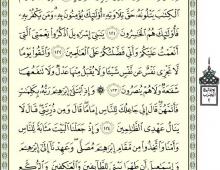 ٱلْكِتَٰبَ يَتْلُونَهُۥ حَقَّ تِلَاوَتِهِۦٓ أُو۟لَٰٓئِكَ يُؤْمِنُونَ بِهِۦ وَمَن يَكْفُرْ بِهِۦ
فَأُو۟لَٰٓئِكَ هُمُ ٱلْخَٰسِرُونَ ١٢١ يَٰبَنِىٓ إِسْرَٰٓءِيلَ ٱذْكُرُوا۟ نِعْمَتِىَ ٱلَّتِىٓ
أَنْعَمْتُ عَلَيْكُمْ وَأَنِّى فَضَّلْتُكُمْ عَلَى ٱلْعَٰلَمِينَ ١٢٢ وَٱتَّقُوا۟ يَوْمًا
لَّا تَجْزِى نَفْسٌ عَن نَّفْسٍ شَيْـًٔا وَلَا يُقْبَلُ مِنْهَا عَدْلٌ وَلَا تَنفَعُهَا
شَفَٰعَةٌ وَلَا هُمْ يُنصَرُونَ ١٢٣ ۞ وَإِذِ ٱبْتَلَىٰٓ إِبْرَٰهِۦمَ رَبُّهُۥ بِكَلِمَٰتٍ
فَأَتَمَّهُنَّ قَالَ إِنِّى جَاعِلُكَ لِلنَّاسِ إِمَامًا قَالَ وَمِن ذُرِّيَّتِى قَالَ لَا
يَنَالُ عَهْدِى ٱلظَّٰلِمِينَ ١٢٤ وَإِذْ جَعَلْنَا ٱلْبَيْتَ مَثَابَةً لِّلنَّاسِ
وَأَمْنًا وَٱتَّخِذُوا۟ مِن مَّقَامِ إِبْرَٰهِۦمَ مُصَلًّى وَعَهِدْنَآ إِلَىٰٓ إِبْرَٰهِۦمَ
وَإِسْمَٰعِيلَ أَن طَهِّرَا بَيْتِىَ لِلطَّآئِفِينَ وَٱلْعَٰكِفِينَ وَٱلرُّكَّعِ